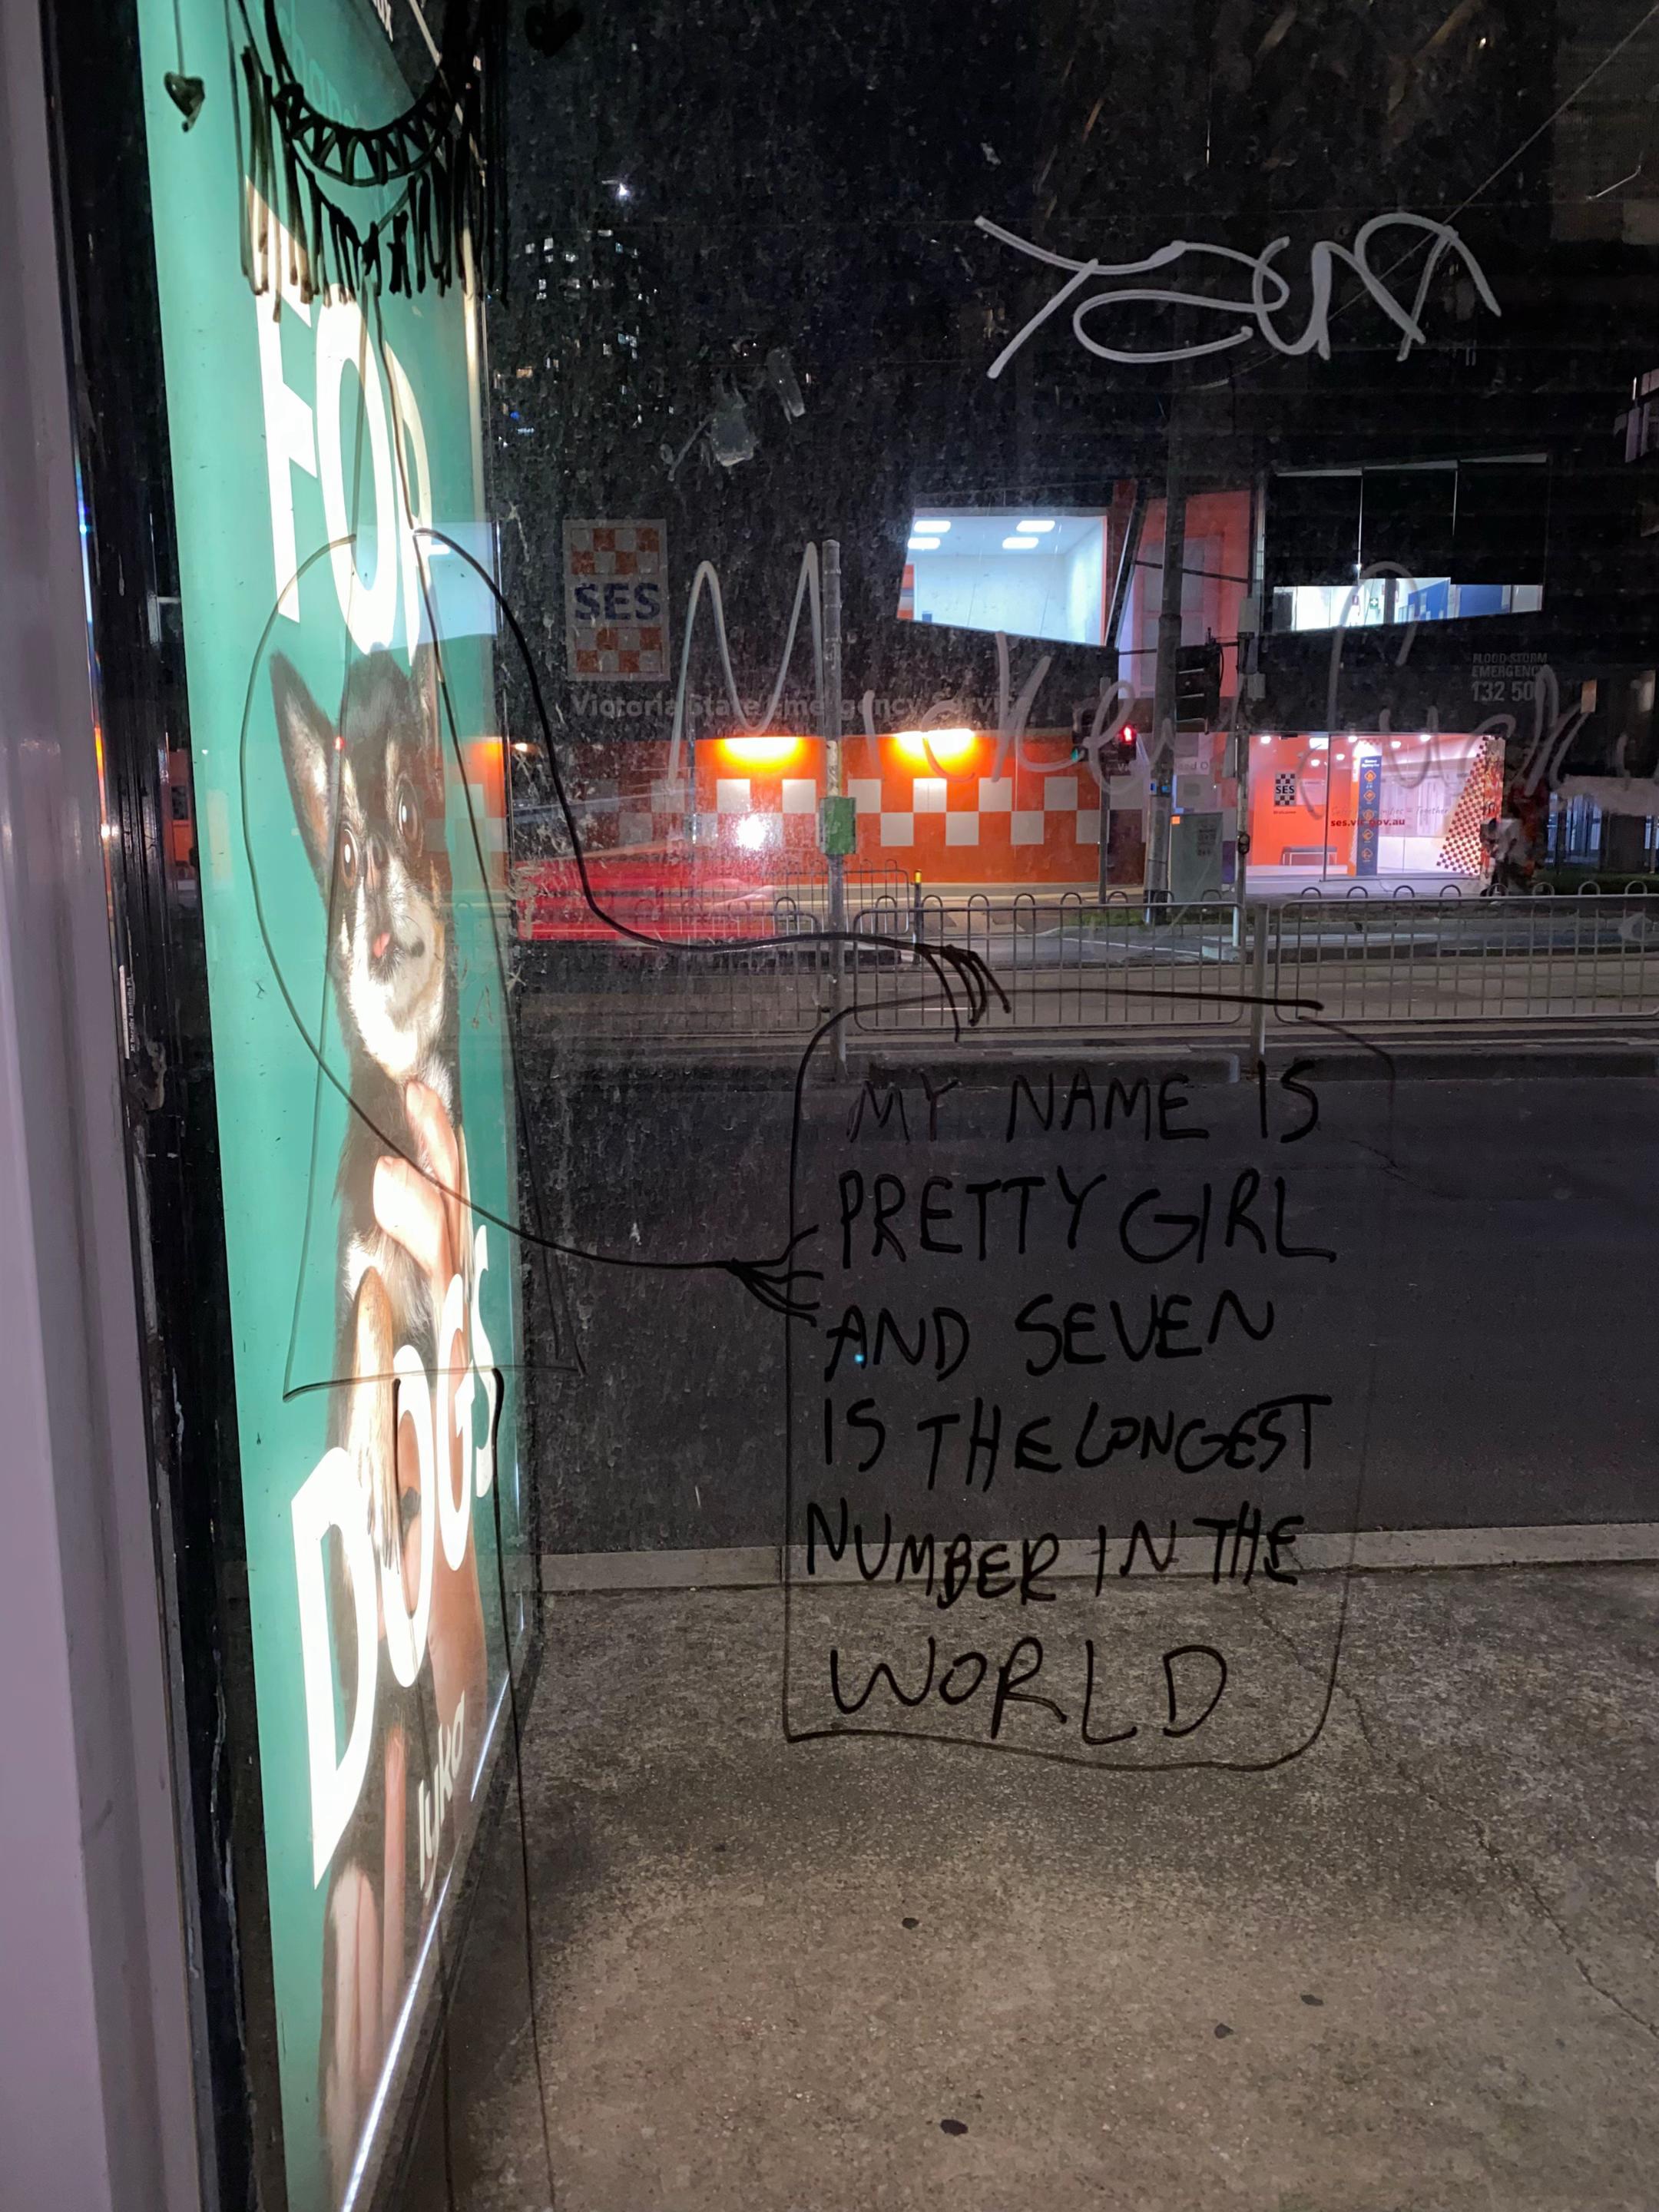 FOR
DOGS
lyka
SES
Victoria State Emergency Service
FLOOD STORM
EMERGENCY
132 500
SES
ses.vic.gov.au
MY NAME IS
PRETTY GIRL
AND SEVEN
IS THE LONGEST
NUMBER IN THE
WORLD